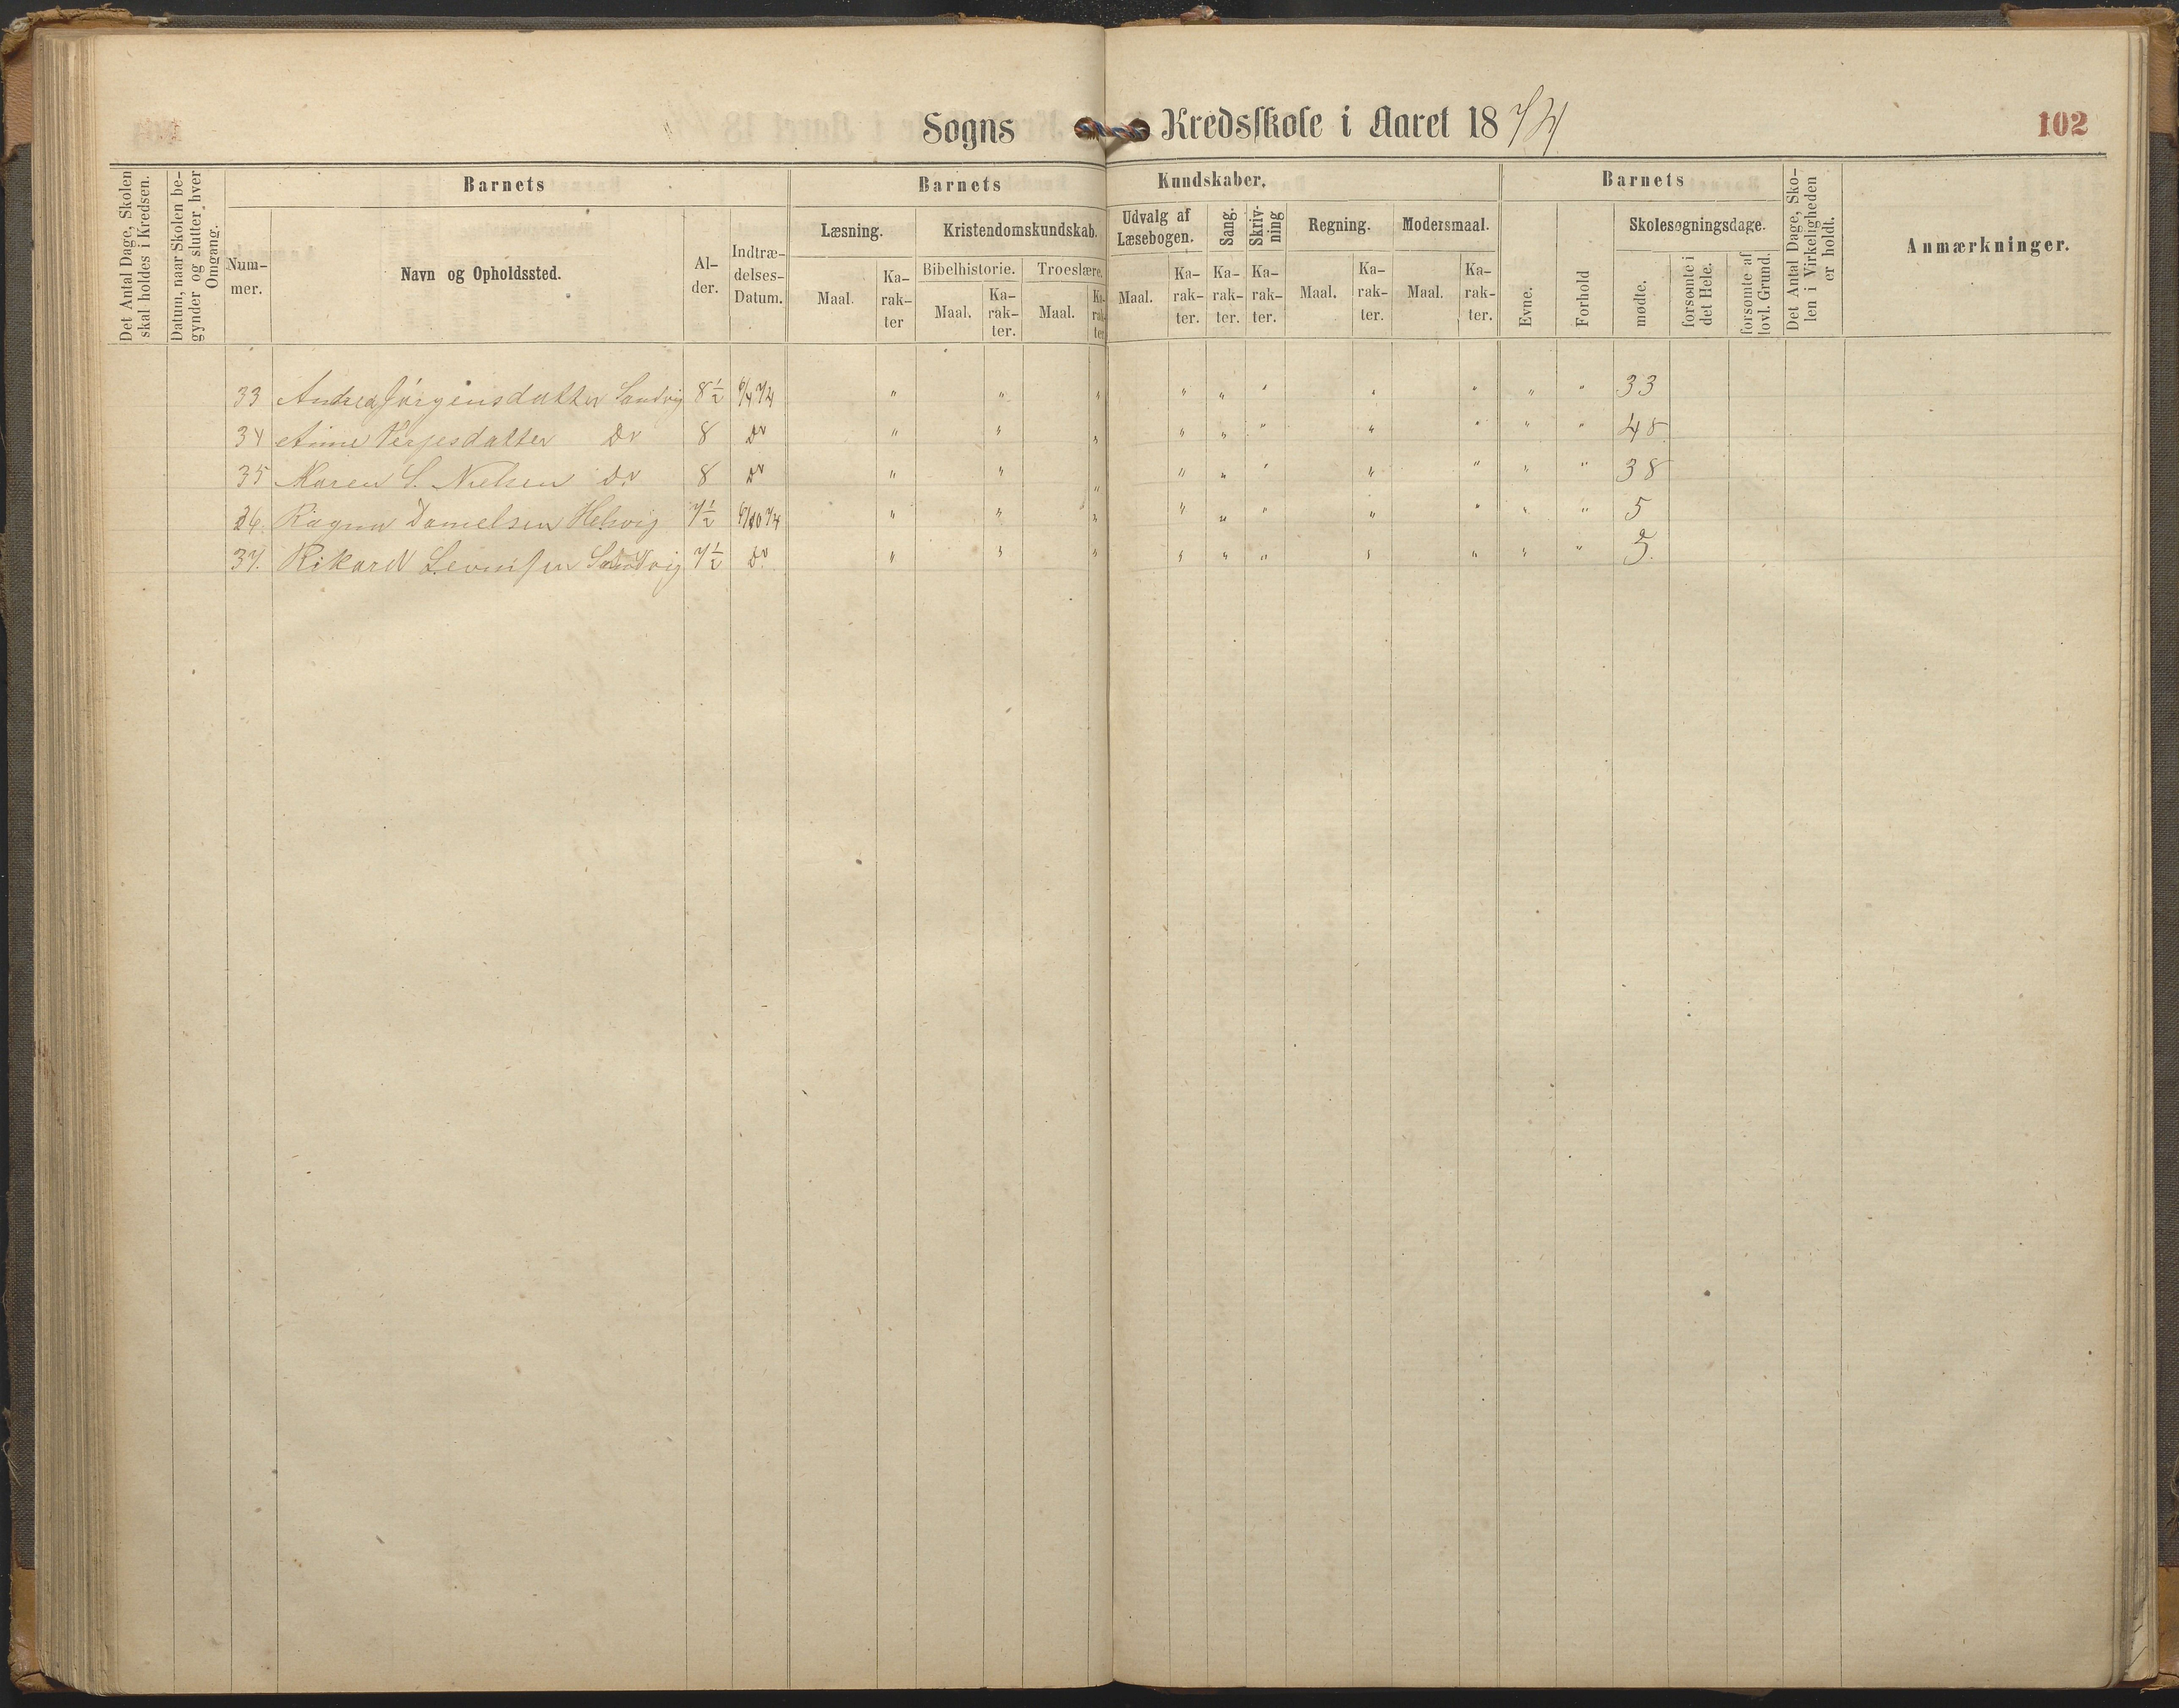 Sogns Kredsskole i Aaret 1874
102
Det Antal Dage, Skolen skal holdes i Kredsen.
Datum, naar Skolen be-gynder og slutter hver Omgang.
Barnets
Num-mer.
Navn og Opholdssted.
Al-der.
Indtræ-delses-Datum.
Barnets Kundskaber.
Læsning.
Maal.
Ka-rak-ter
Kristendomskundskab.
Bibelhistorie.
Maal.
Ka-rak-ter.
Troeslære.
Maal.
Ka-rak-ter
Udvalg af Læsebogen.
Maal.
Ka-rak-ter.
Sang.
Ka-rak-ter.
Skriv-ning
Ka-rak-ter.
Regning.
Maal.
Ka-rak-ter.
Modersmaal.
Maal.
Ka-rak-ter.
Barnets
Evne.
Forhold
Skolesøgningsdage.
mødte.
forsømte i det Hele.
forsømte af lovl. Grund.
Det Antal Dage, Sko-len i Virkeligheden er holdt.
Anmærkninger.
33 Andrea Jørgensdatter Sandvig 8½ 6/4 74 " " " " " " " " " " 33
34 Anne Terjesdatter Do 8 Do " " " " " " " " " " 48
35 Maren S. Nielsen Do 8 Do " " " " " " " " " " 38
36. Ragna Danielsen Helsvig 7½ 6/10 74 " " " " " " " " " " 5
37. Rikard Sandvig 7½ Do " " " " " " " " " " 5.